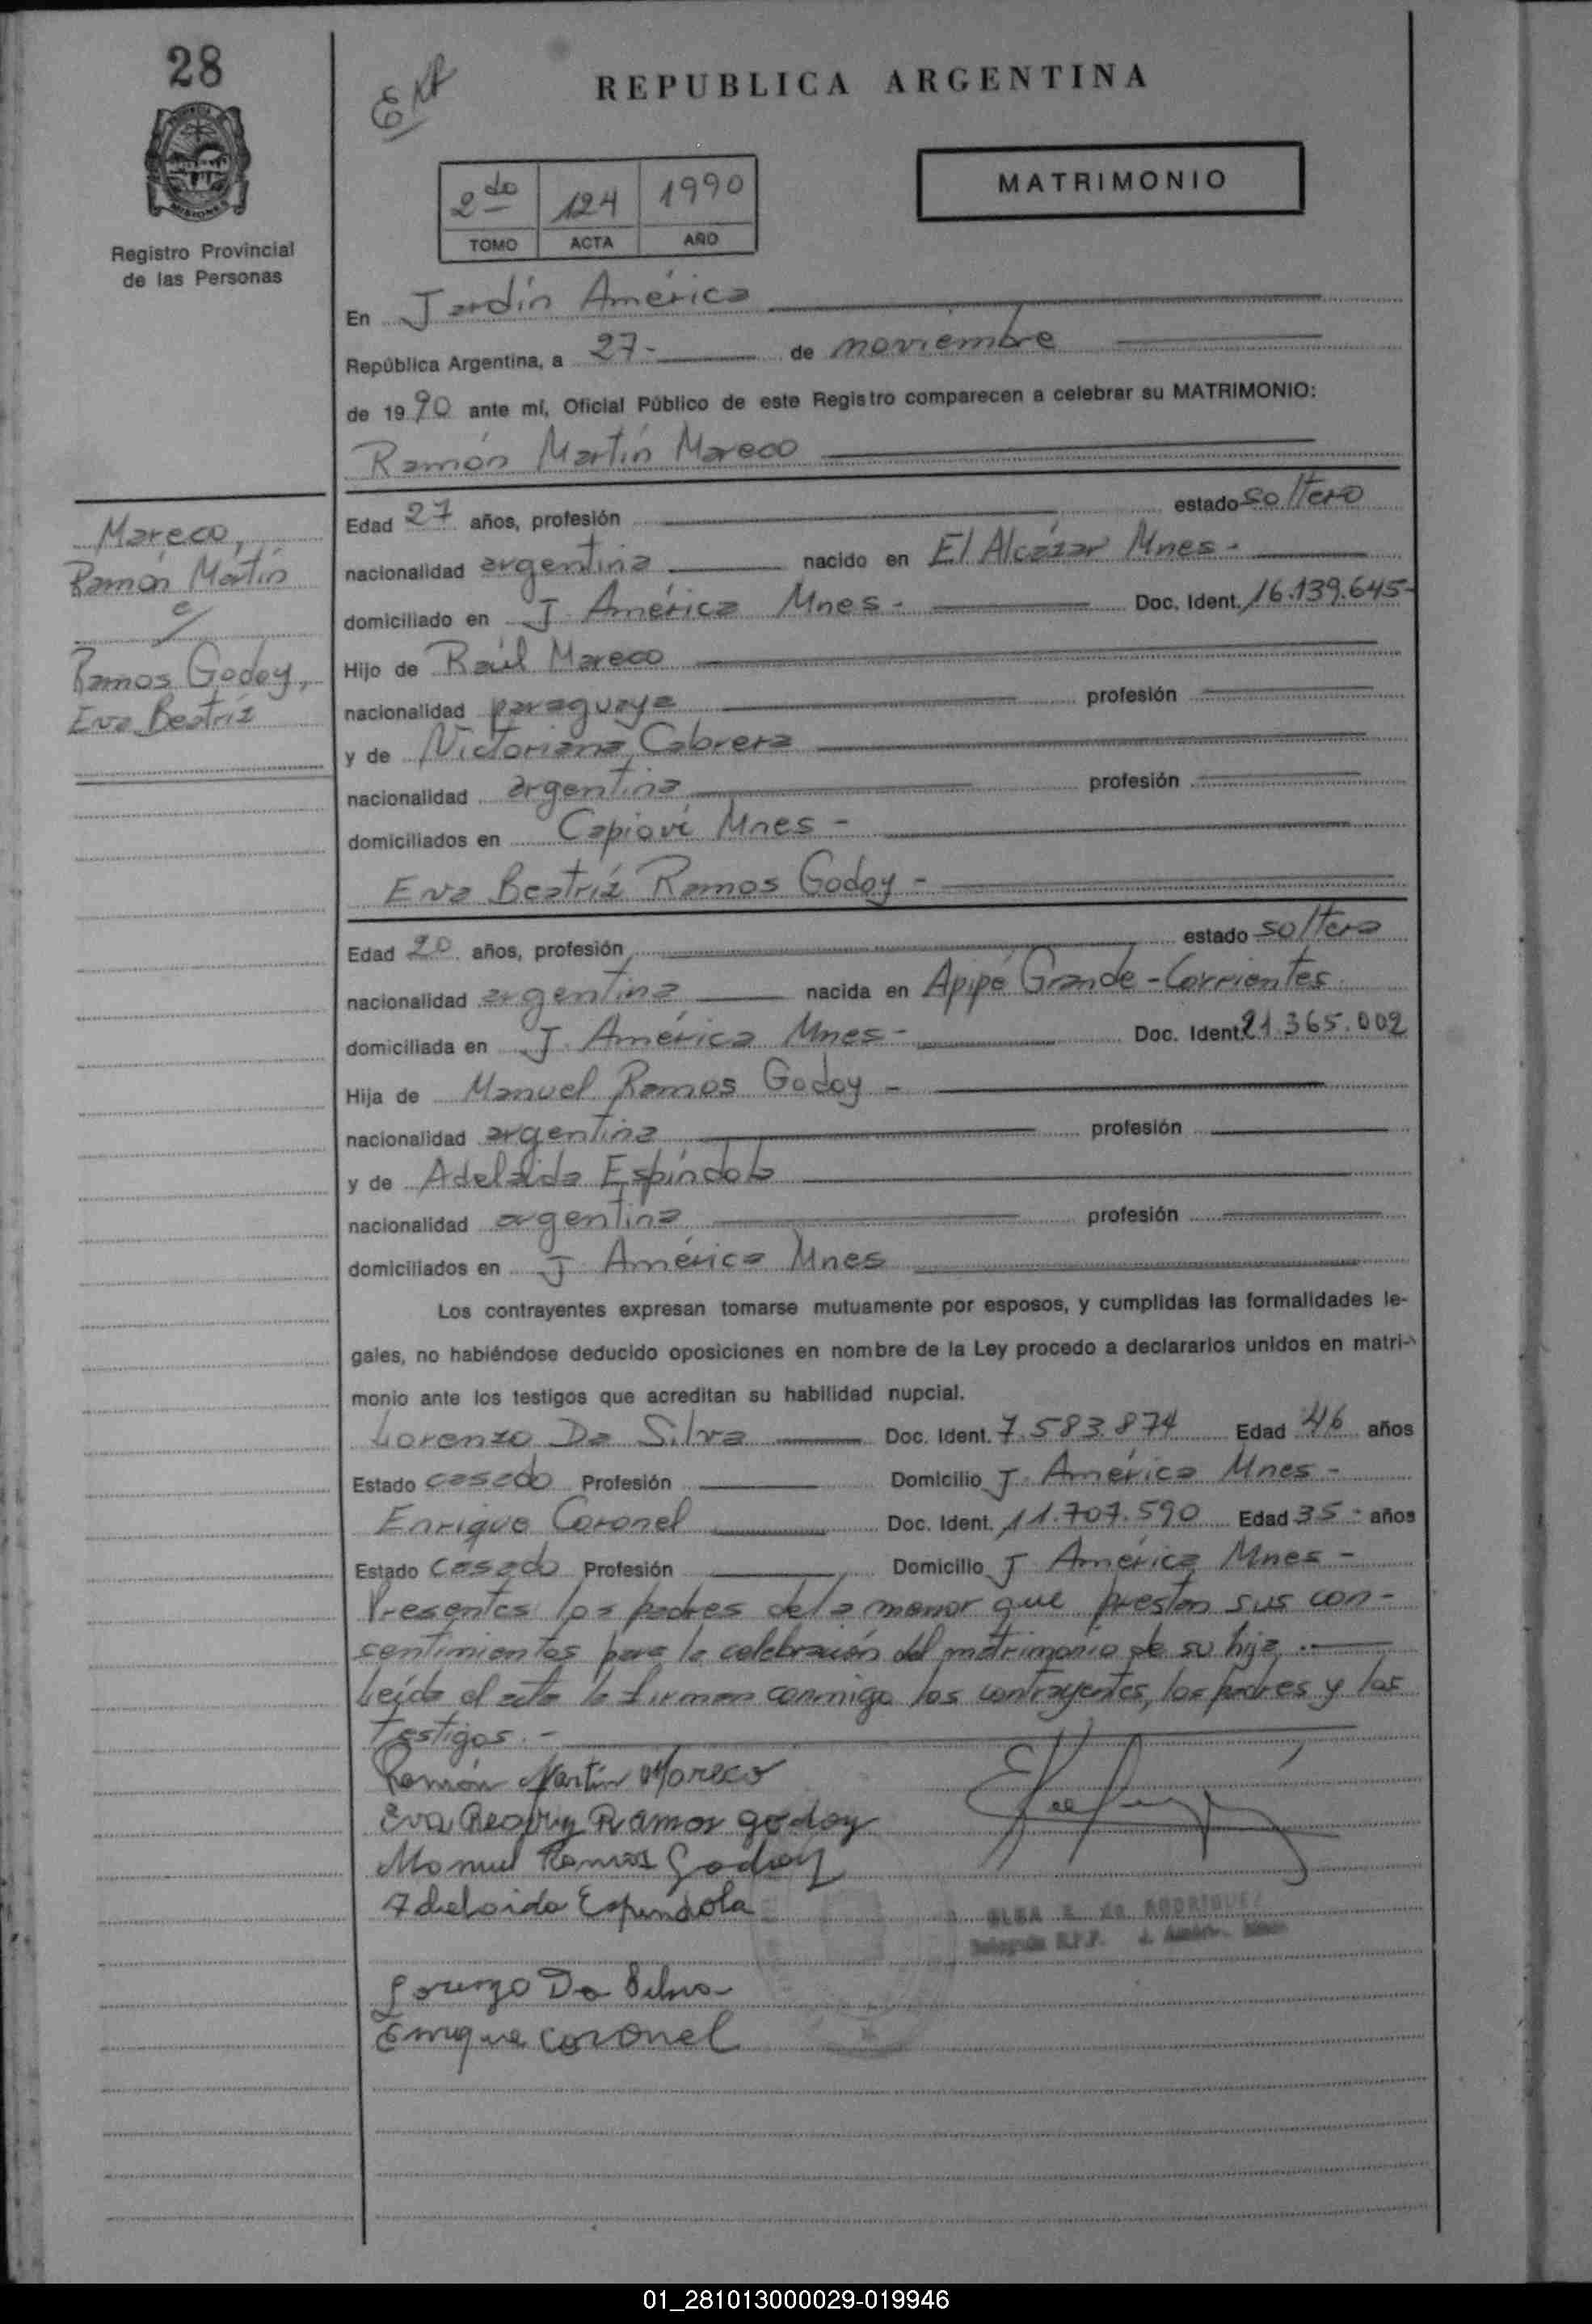 28
Ext
REPUBLICA ARGENTINA
MISIONES
Registro Provincial
de las Personas
2do 124 1990
TOMO ACTA AÑO
MATRIMONIO
En Jardín América
República Argentina, a 27- de noviembre
de 1990 ante mí, Oficial Público de este Registro comparecen a celebrar su MATRIMONIO:
Ramón Martín Mareco
Mareco,
Ramón Martín
c/
Ramos Godoy,
Eva Beatríz
Edad 27 años, profesión estado soltero
nacionalidad argentina nacido en El Alcázar Mnes-
domiciliado en J. América Mnes- Doc. Ident. 16.139.645-
Hijo de Raúl Mareco
nacionalidad paraguaya profesión
y de Victoriana Cabrera
nacionalidad argentina profesión
domiciliados en Capioví Mnes-
Eva Beatríz Ramos Godoy-
Edad 20 años, profesión estado soltera
nacionalidad argentina nacida en Apipé Grande-Corrientes
domiciliada en J. América Mnes- Doc. Ident. 21.365.002
Hija de Manuel Ramos Godoy-
nacionalidad argentina profesión
y de Adelaida Espíndola
nacionalidad argentina profesión
domiciliados en J. América Mnes
Los contrayentes expresan tomarse mutuamente por esposos, y cumplidas las formalidades le-
gales, no habiéndose deducido oposiciones en nombre de la Ley procedo a declararlos unidos en matri-
monio ante los testigos que acreditan su habilidad nupcial.
Lorenzo Da Silva Doc. Ident. 7.583.874 Edad 46 años
Estado casado Profesión Domicilio J. América Mnes-
Enrique Coronel Doc. Ident. 11.707.590 Edad 35- años
Estado casado Profesión Domicilio J América Mnes-
Presentes los padres de la menor que prestan sus con-
sentimientos para la celebración del matrimonio de su hija.-
Leída el acta la firman conmigo los contrayentes, los padres y los
testigos.-
Ramón Martín Mareco
Eva Beatriz Ramos Godoy
Manuel Ramos Godoy
Adelaida Espindola
RODRIGUEZ
Lorenzo Da Silva
Enrique Coronel
01_281013000029-019946